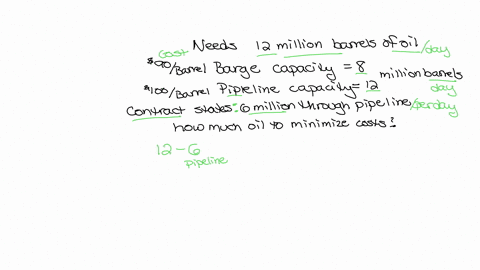 Cost Needs 12 million barrels of oil/day
$90/Barrel Barge capacity = 8 million barrels
$100/Barrel Pipleline capacity = 12 day
Contract states: 6 million through pipeline/perday
how much oil to minimize costs?
12 - 6
pipeline